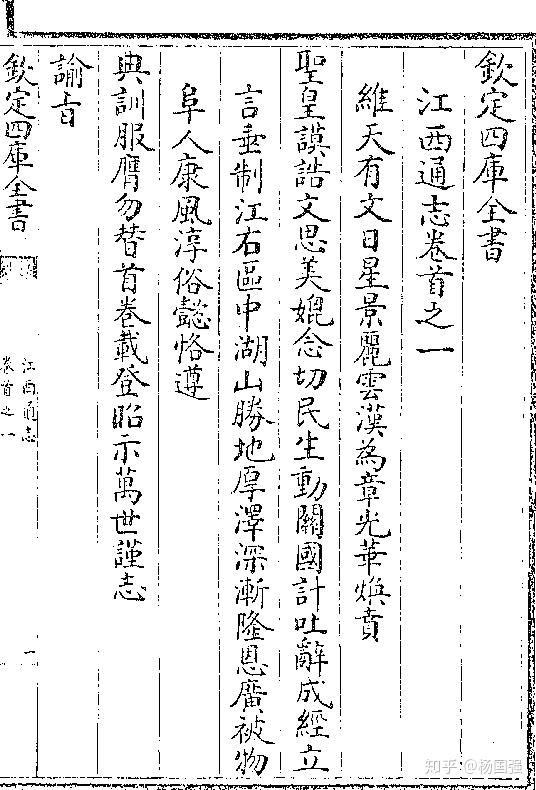 欽定四庫全書
江西通志卷首之一
維天有文日星景麗雲漢為章光華煥賁
聖皇謨誥文思美媲念切民生動關國計吐辭成經立
言垂制江右區中湖山勝地厚澤深漸隆恩廣被物
阜人康風淳俗懿恪遵
典訓服膺勿替首卷載登昭示萬世謹志
諭旨
欽定四庫全書
江西通志
卷首之一
一
知乎 @杨国强